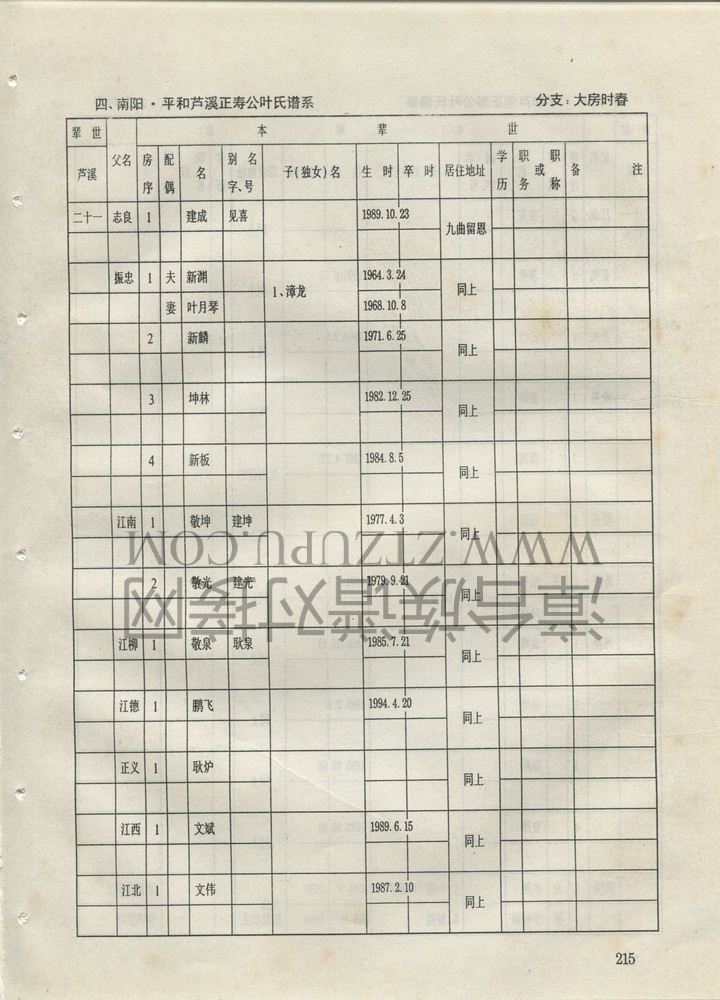 四、南阳·平和芦溪正寿公叶氏谱系 分支：大房时春
辈世 父名 房序 配偶 本辈世
芦溪 名 别名字、号 子(独女)名 生时 卒时 居住地址 学历 职务或职称 备注
二十一 志良 1 建成 见喜 1989.10.23 九曲留恩
振忠 1 夫 新渊 1、漳龙 1964.3.24 同上
妻 叶月琴 1968.10.8
2 新麟 1971.6.25 同上
3 坤林 1982.12.25 同上
4 新板 1984.8.5 同上
江南 1 敬坤 建坤 1977.4.3 同上
WWW.ZTZUPU.COM
2 敬光 建光 1979.9.21 同上
漳台族谱对接网
江柳 1 敬泉 耿泉 1985.7.21 同上
江德 1 鹏飞 1994.4.20 同上
正义 1 耿炉 同上
江西 1 文斌 1989.6.15 同上
江北 1 文伟 1987.2.10 同上
215